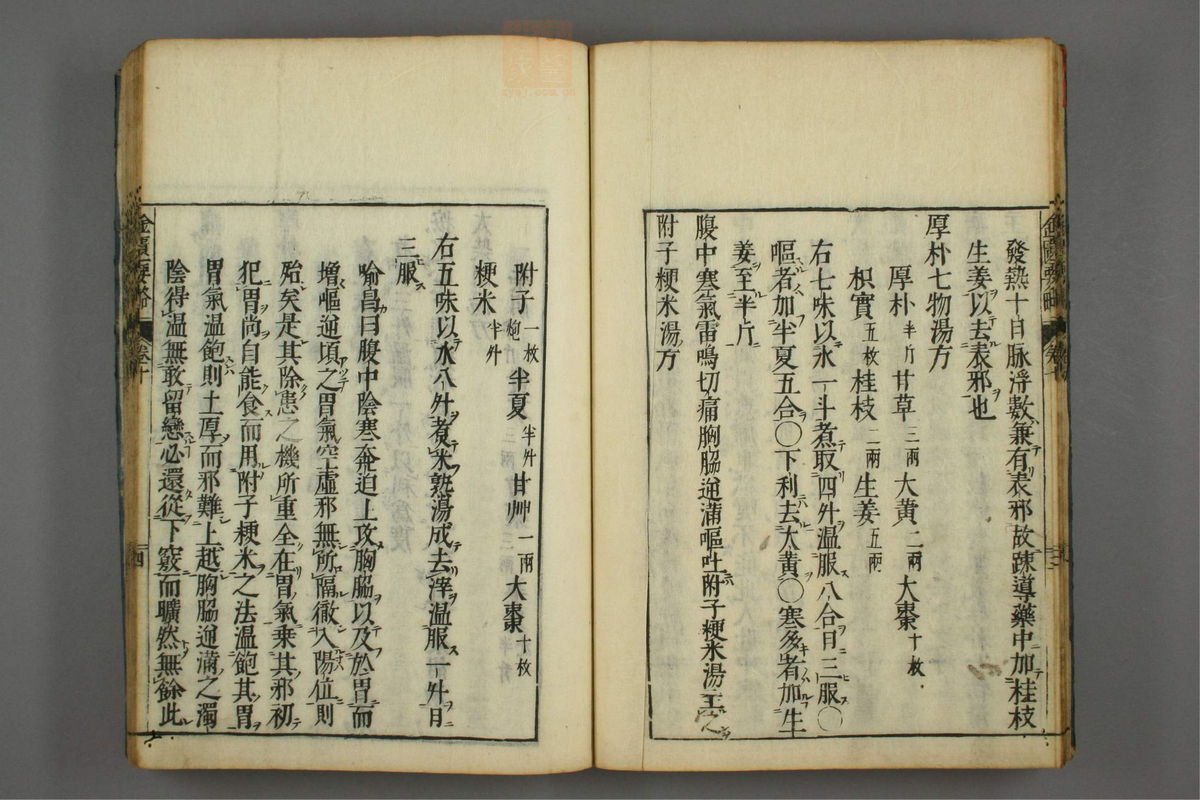 發熱十日脉浮數兼有表邪故疎導藥中加桂枝
生姜以去表邪也
厚朴七物湯方
厚朴半斤甘草三兩大黄二兩大棗十枚
枳實五枚桂枝二兩生姜五兩
右七味以水一斗煮取四升温服八合日三服○
嘔者加半夏五合○下利去大黄○寒多者加生
姜至半斤
腹中寒氣雷鳴切痛胸脇逆滿嘔吐附子粳米湯主之
附子粳米湯方
附子一枚炮半夏半升甘艸一兩大棗十枚
粳米半升
右五味以水八升煮米熟湯成去滓温服一升日
三服
喻昌曰腹中陰寒奔迫上攻胸脇以及於胃而
增嘔逆頃之胃氣空虛邪無所隔徹入陽位則
殆矣是其除患之機所重全在胃氣乗其邪初
犯胃尚自能食而用附子粳米之法温飽其胃
胃氣温飽則土厚而邪難上越胸脇逆滿之濁
陰得温無敢留戀必還從下竅而曠然無餘此
金匱要略 卷十 四